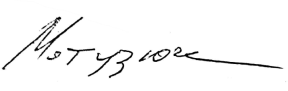 Мотузюк